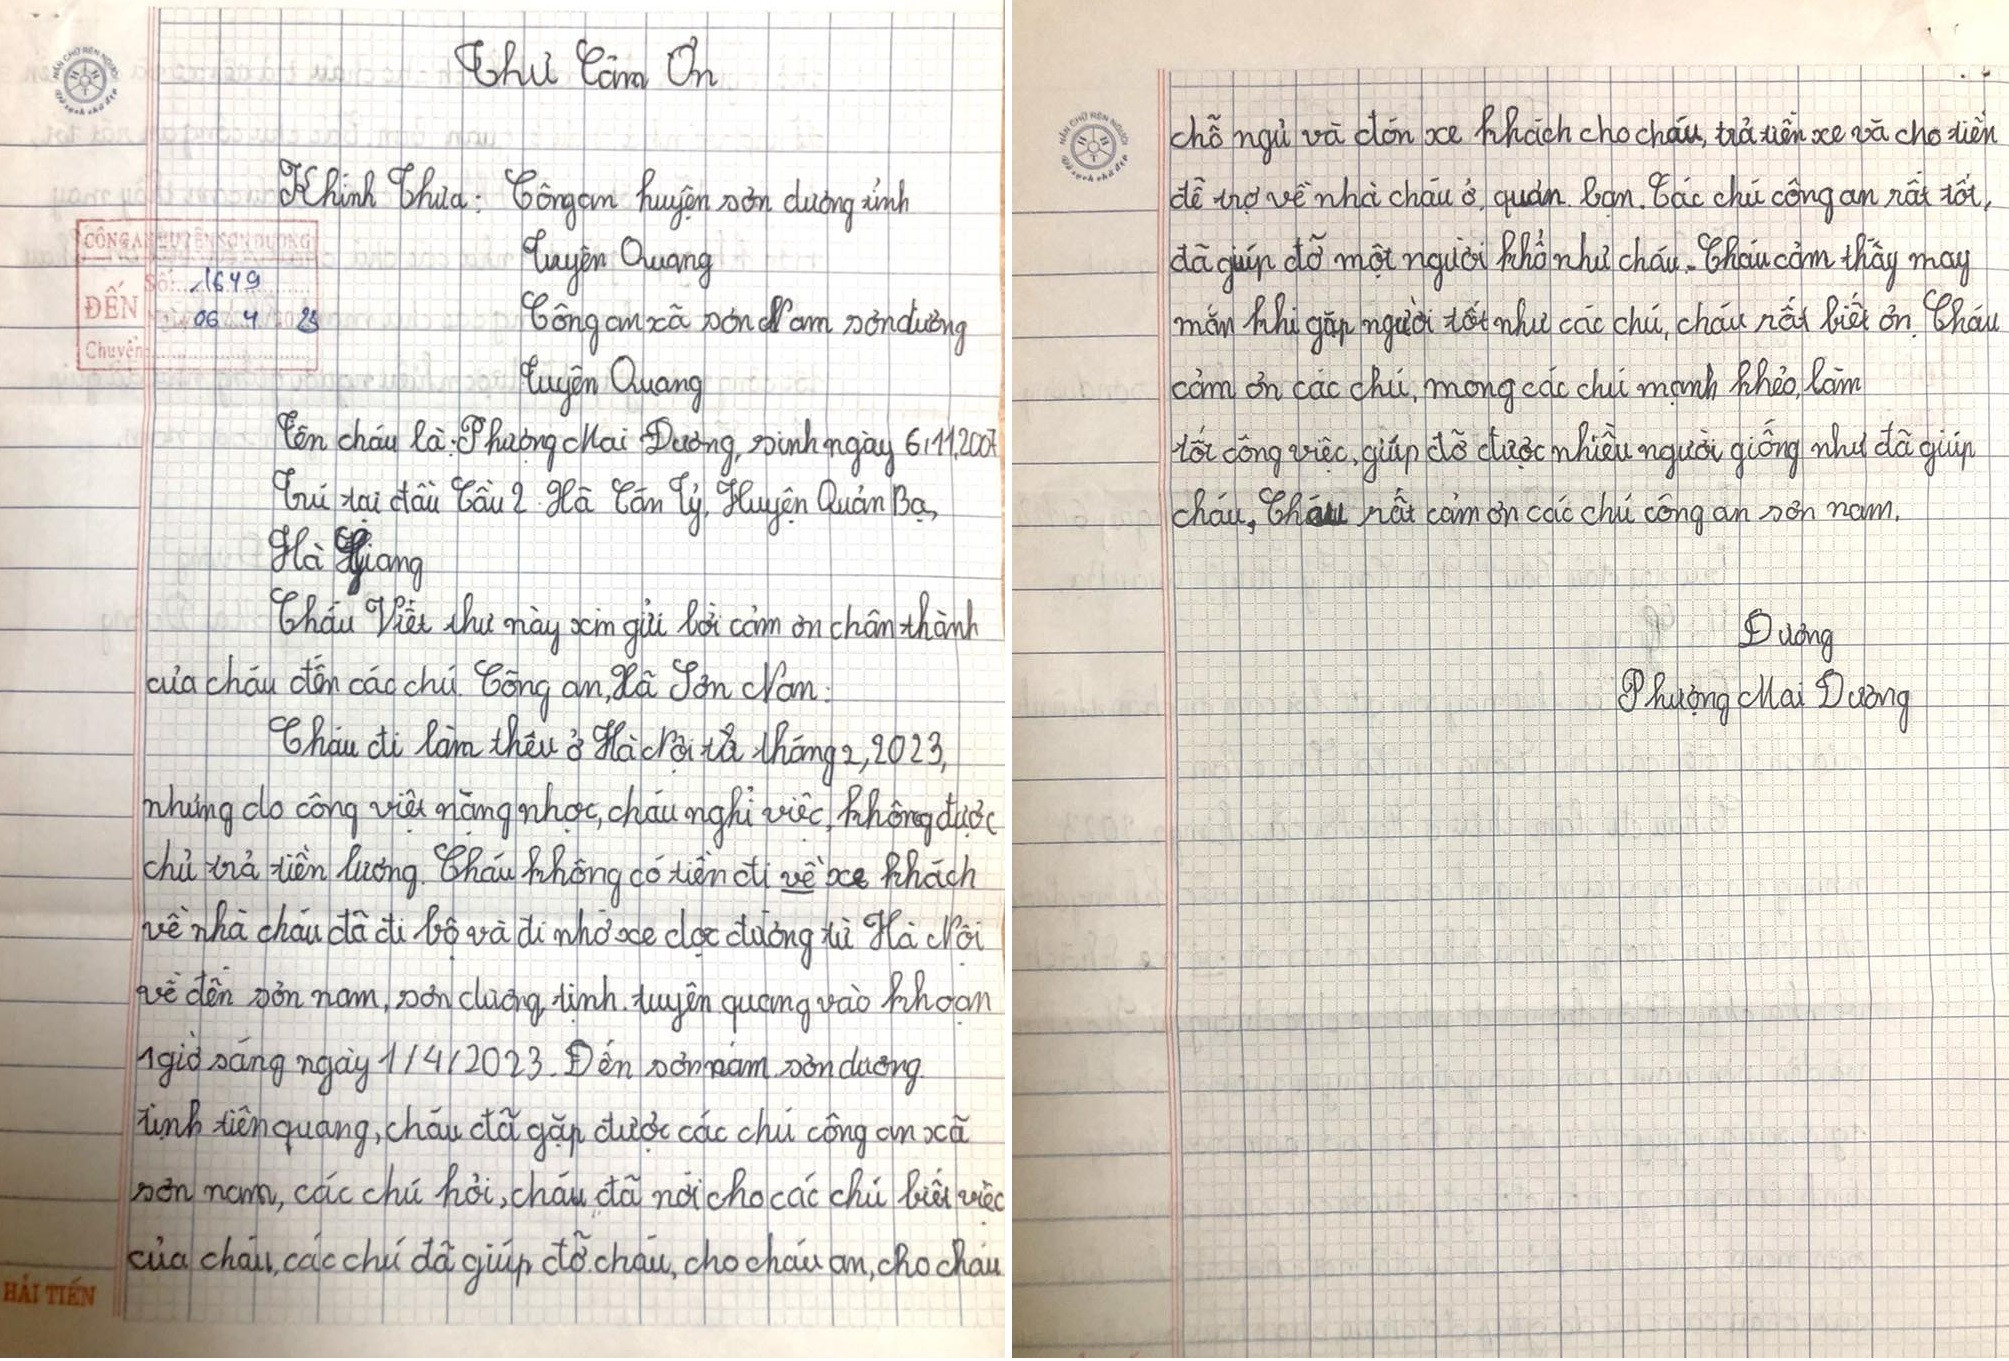 Thư Cảm Ơn
NẮN CHỮ RÈN NGƯỜI
Khính Thưa: Công an huyện sơn dương tỉnh
Tuyên Quang
CÔNG AN HUYỆN SƠN DƯƠNG
Số: 1649
ĐẾN
06 4 23
Chuyển:
Công an xã sơn Nam sơn dương
Tuyên Quang
Tên cháu là: Phượng Mai Dương, sinh ngày 6,11,2007
Trú tại đầu Cầu 2. Hà Cán Tỷ, Huyện Quản Bạ,
Hà Giang
Cháu Viết thư này xin gửi lời cảm ơn chân thành
của cháu đến các chú Công an, Xã Sơn Nam:
Cháu đi làm thêu ở Hà Nội từ tháng 2, 2023,
nhưng do công việt nặng nhọc, cháu nghỉ việc, không được
chủ trả tiền lương. Cháu không có tiền đi về xe khách
về nhà cháu đã đi bộ và đi nhờ xe dọc đường từ Hà Nội
về đến sơn nam, sơn dương, tịnh tuyên quang vào khoạn
1 giờ sáng ngày 1/4/2023. Đến sơn nam sơn dương
tỉnh tiên quang, cháu đã gặp được các chú công an xã
sơn nam, các chú hỏi, cháu đã nói cho các chú biết việc
của cháu, các chú đã giúp đỡ cháu, cho cháu ăn, cho cháu
HẢI TIẾN
NẮN CHỮ RÈN NGƯỜI
chỗ ngủ và đón xe khách cho cháu, trả tiền xe và cho tiền
để trợ về nhà cháu ở quản bạn. Các chú công an rất tốt,
đã giúp đỡ một người khổ như cháu. Cháu cảm thấy may
mắn khi gặp người tốt như các chú, cháu rất biết ơn. Cháu
cảm ơn các chú, mong các chú mạnh khẻo, làm
tốt công việc, giúp đỡ được nhiều người giống như đã giúp
cháu, Cháu rất cảm ơn các chú công an sơn nam.
Dương
Phượng Mai Dương